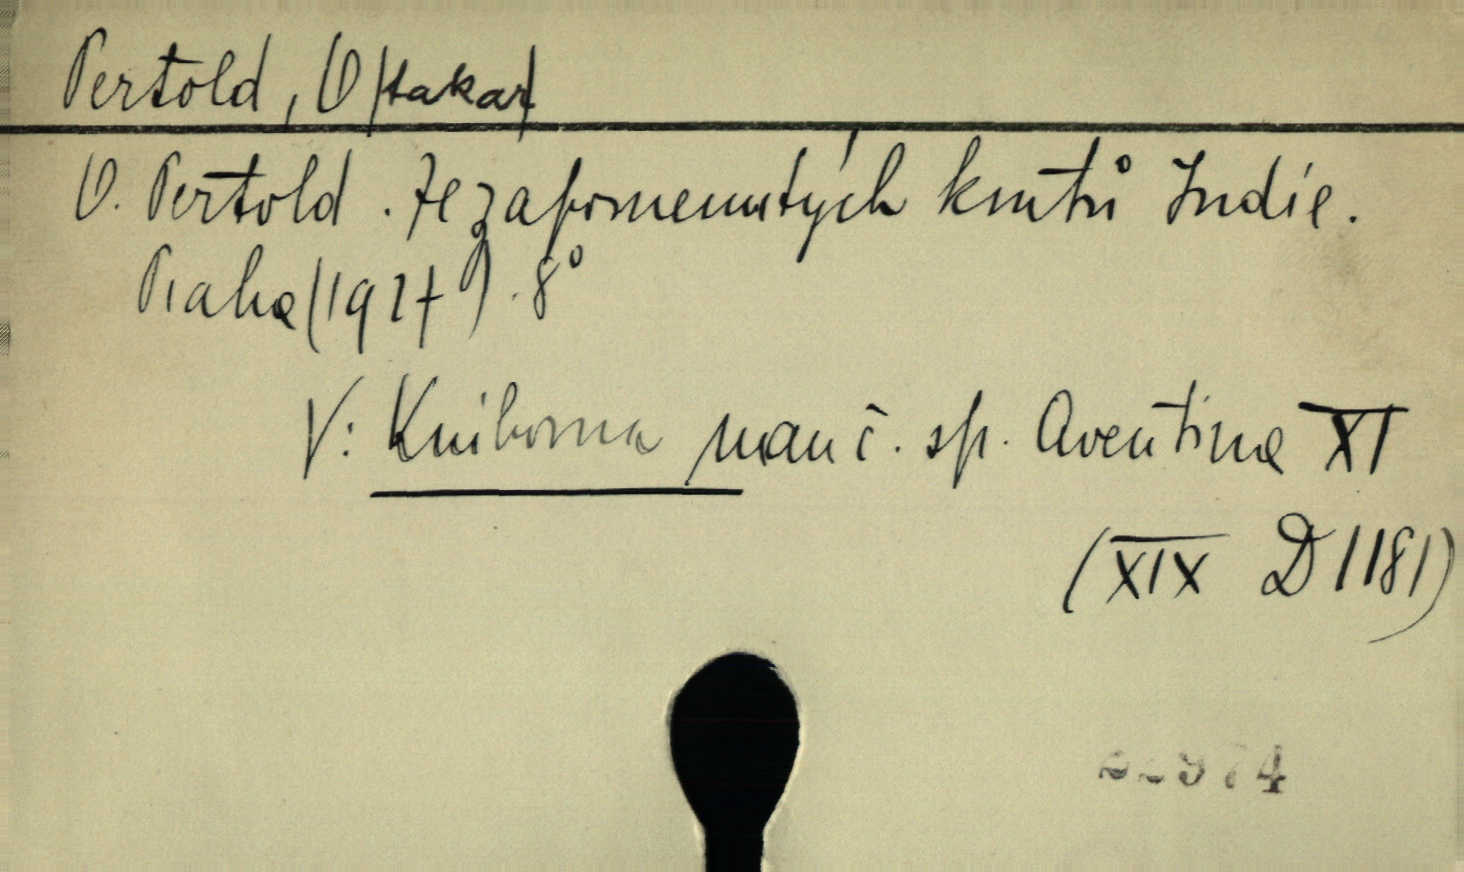 Pertold, O/takar/
O. Pertold. Ze zapomenutých koutů Indie.
Praha (1927?). 8°
V: Knihovna nauč. sp. Aventina XI
(XIX D 1181)